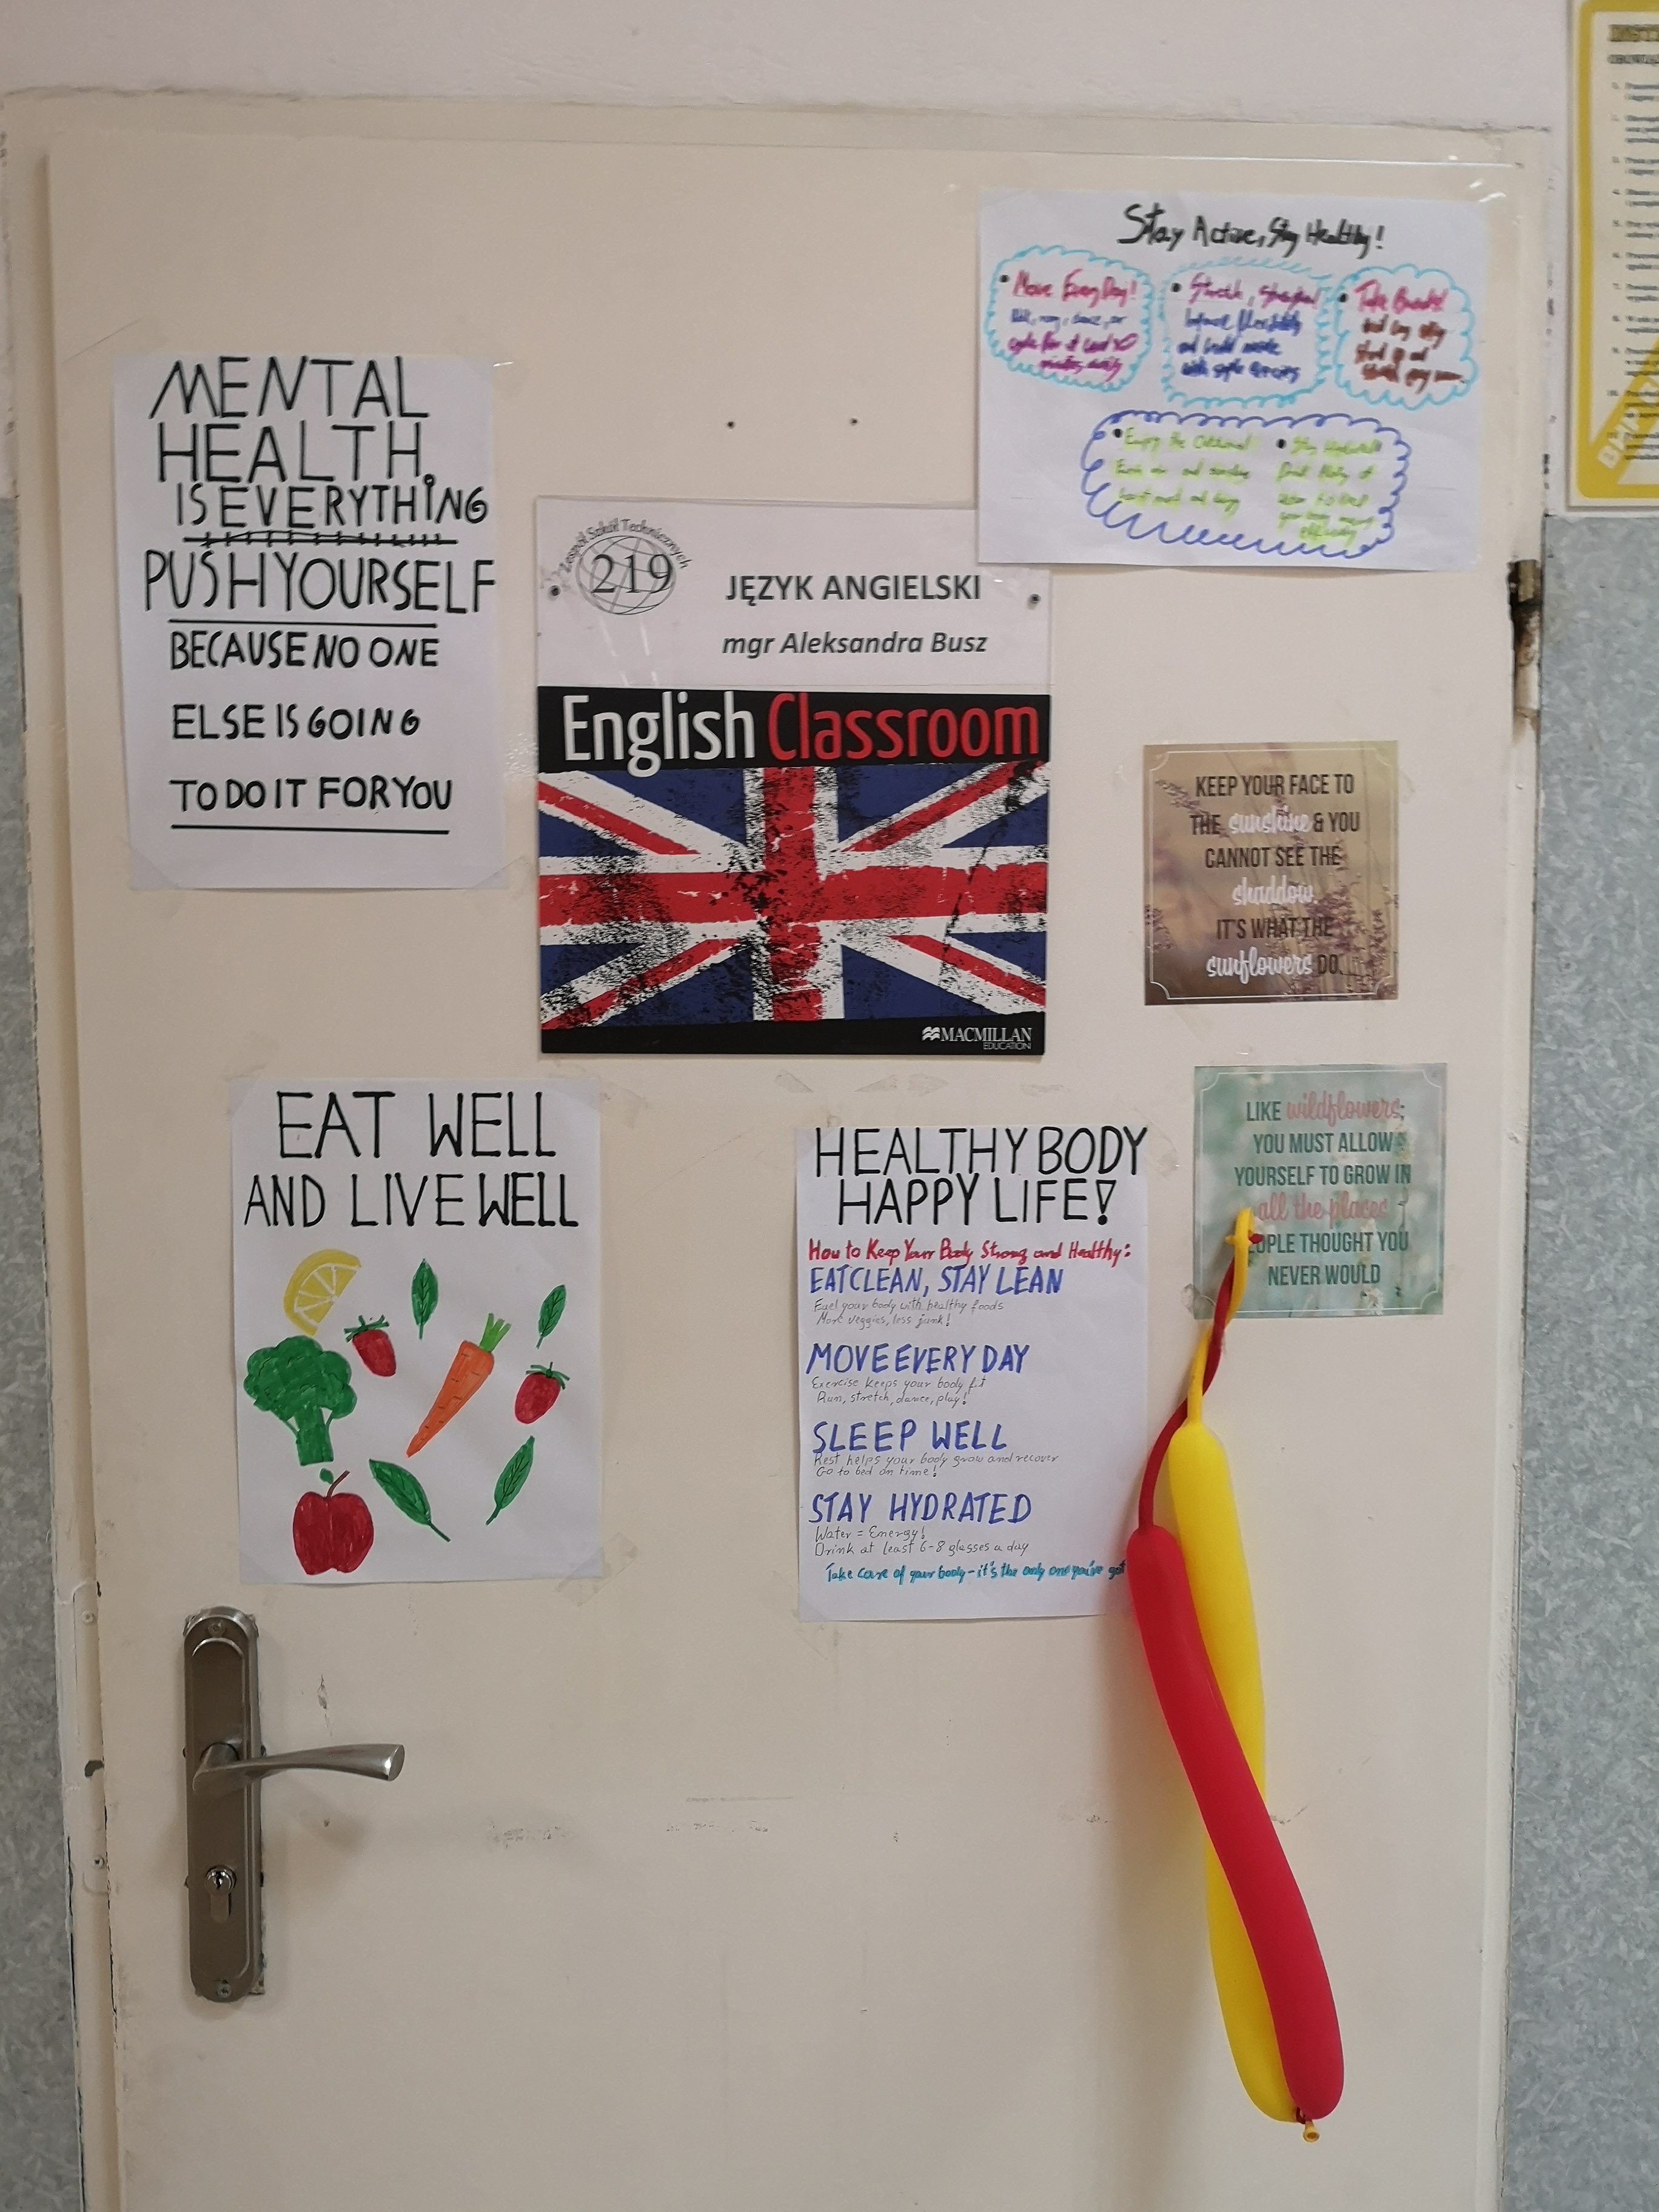 MENTAL
HEALTH
IS EVERYTHING
PUSH YOURSELF
BECAUSE NO ONE
ELSE IS GOING
TO DO IT FOR YOU
Stay Active, Stay Healthy!
• Move Every Day!
cycle for at least
minutes daily
• Stretch,
Improve flexibility
and build muscle
with simple
• Take Breaks!
stand up and
• Enjoy the Outdoors!
Fresh air and sunshine
boost mood and energy
• Stay Hydrated!
Drink Plenty of
water to keep
your
Zespół Szkół Technicznych
219
JĘZYK ANGIELSKI
mgr Aleksandra Busz
English Classroom
MACMILLAN
EDUCATION
KEEP YOUR FACE TO
THE sunshine & YOU
CANNOT SEE THE
shaddow.
IT'S WHAT THE
sunflowers DO.
LIKE wildflowers;
YOU MUST ALLOW
YOURSELF TO GROW IN
all the places
OPLE THOUGHT YOU
NEVER WOULD
EAT WELL
AND LIVE WELL
HEALTHY BODY
HAPPY LIFE!
How to Keep Your Body Strong and Healthy:
EAT CLEAN, STAY LEAN
Fuel your body with healthy foods
More veggies, less junk!
MOVE EVERY DAY
Exercise keeps your body fit
Run, stretch, dance, play!
SLEEP WELL
Rest helps your body grow and recover
Go to bed on time!
STAY HYDRATED
Water = Energy!
Drink at least 6-8 glasses a day
Take care of your body-it's the only one you've got